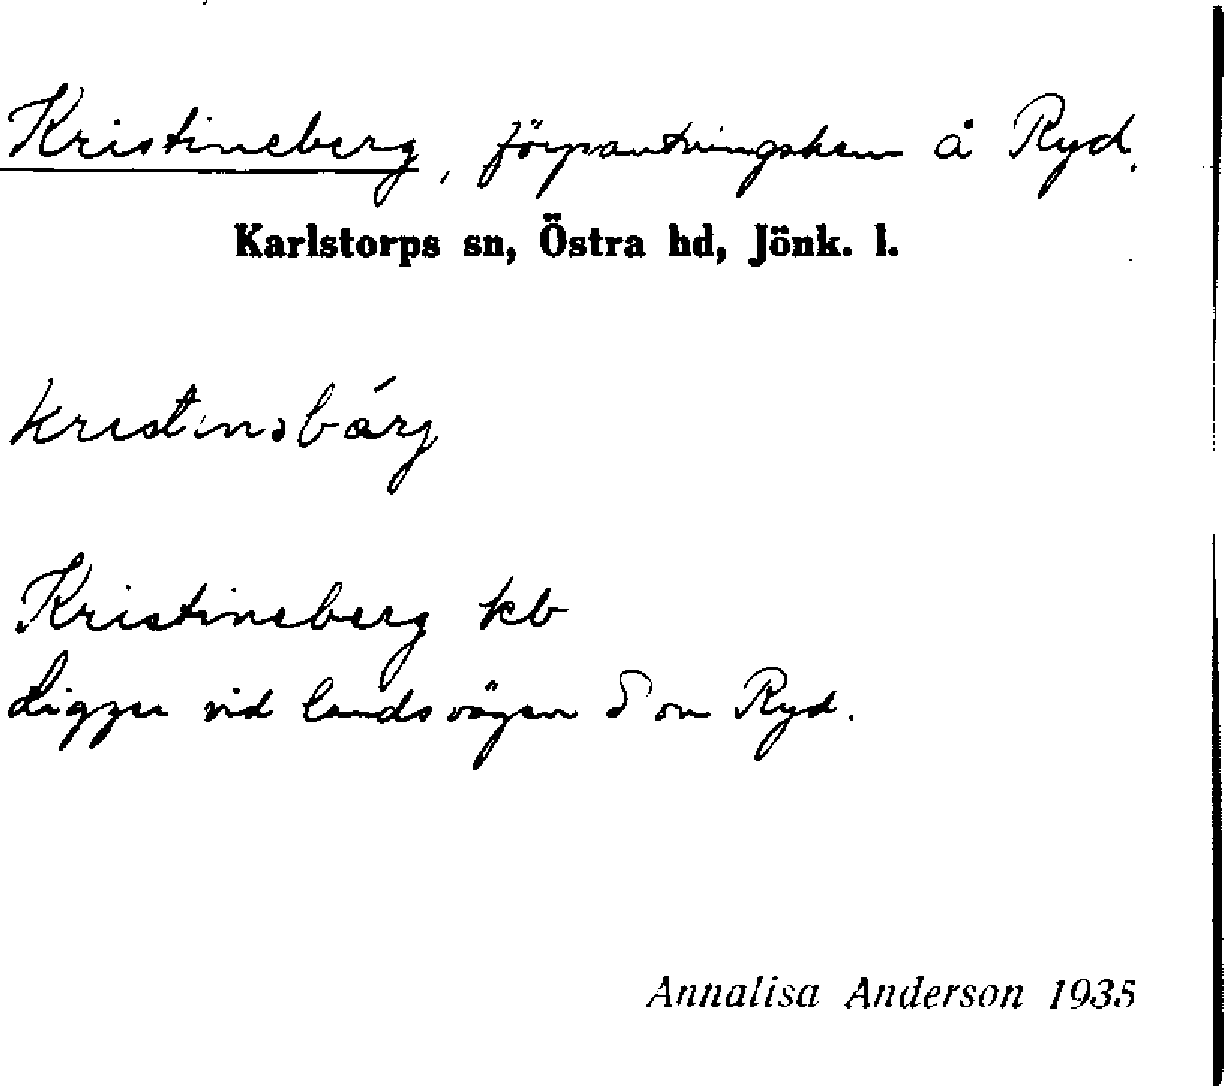 Kristineberg, förpantningshem å Ryd.
Karlstorps sn, Östra hd, Jönk. l.
kristinəbárj
Kristineberg kb
Ligger vid landsvägen S om Ryd.
Annalisa Anderson 1935